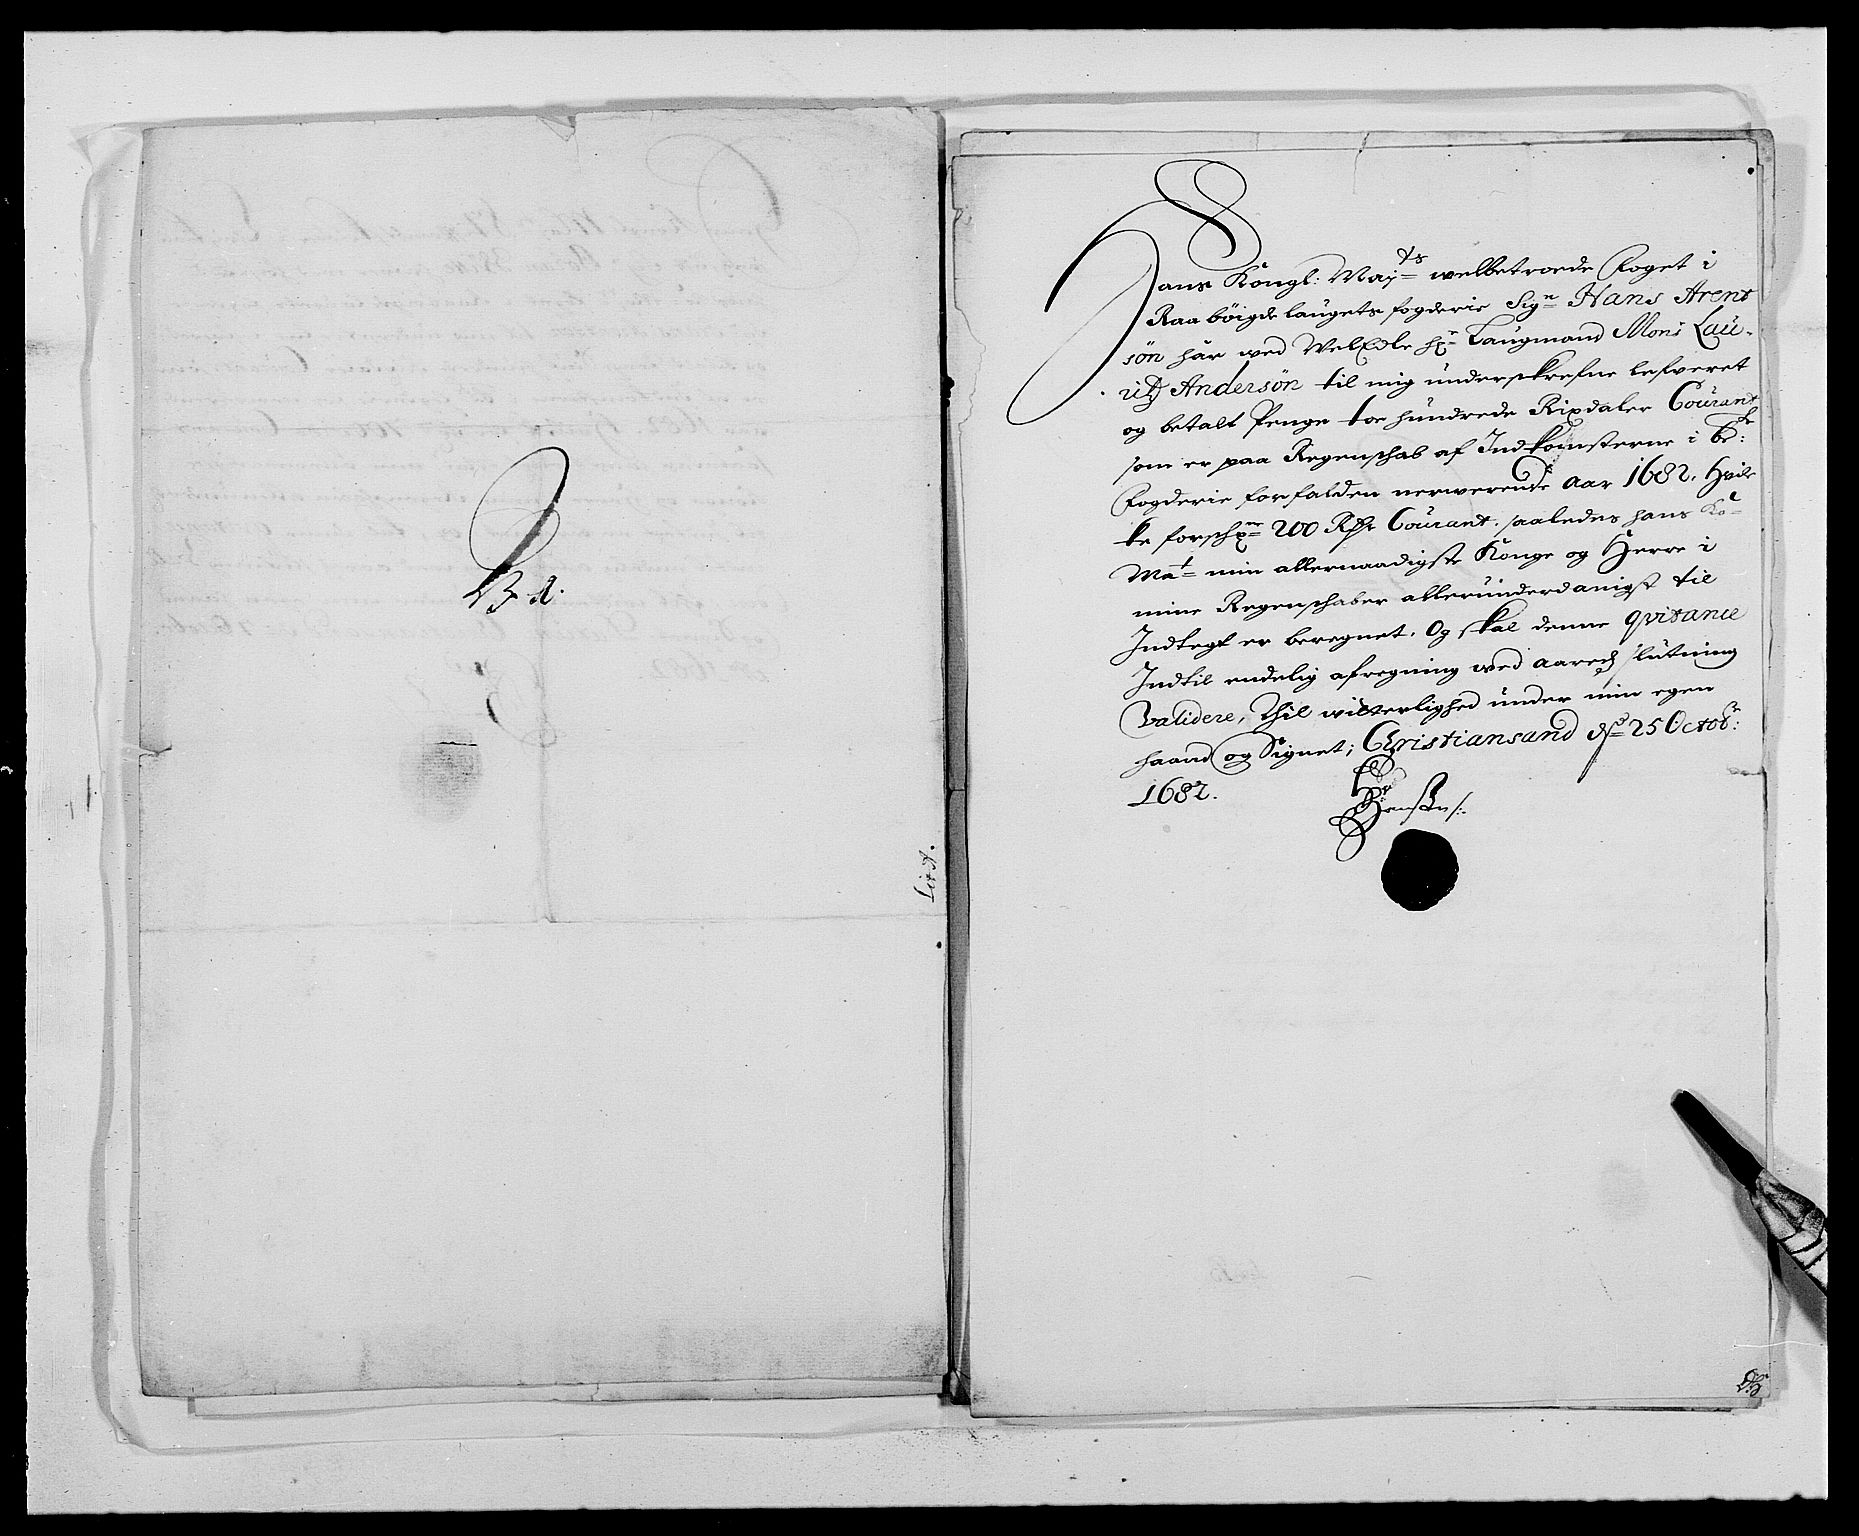 Lit A.
Hans Kongl: May^ts welbetroede Foget i
Raabøigdelaugets fogderie Sig^n Hans Arent
søn har wed WelEdle H^r Laugmand Mons Lau-
ritz Andersøn til mig underskrefne lefweret
og betalt Penge toe hundrede Rixdaler Courant
som er paa Regenschab af Indkomsterne i b^te:
Fogderie forfalden nerwerende Aar 1682. Hvil
ke forsch^ne 200 Rdr Courant. saaledes hans Ko^l
Ma^t min allernaadigste Konge og Herre i
mine Regenschaber allerunderdanigst til
Indtegt er beregnet. Og skal denne qvitance
Indtil endelig afregning wed aaredz slutning
Validere, Thil witterlighed under min egen
haand og Signet; Christiansand d. 25 Octob^r:
1682.